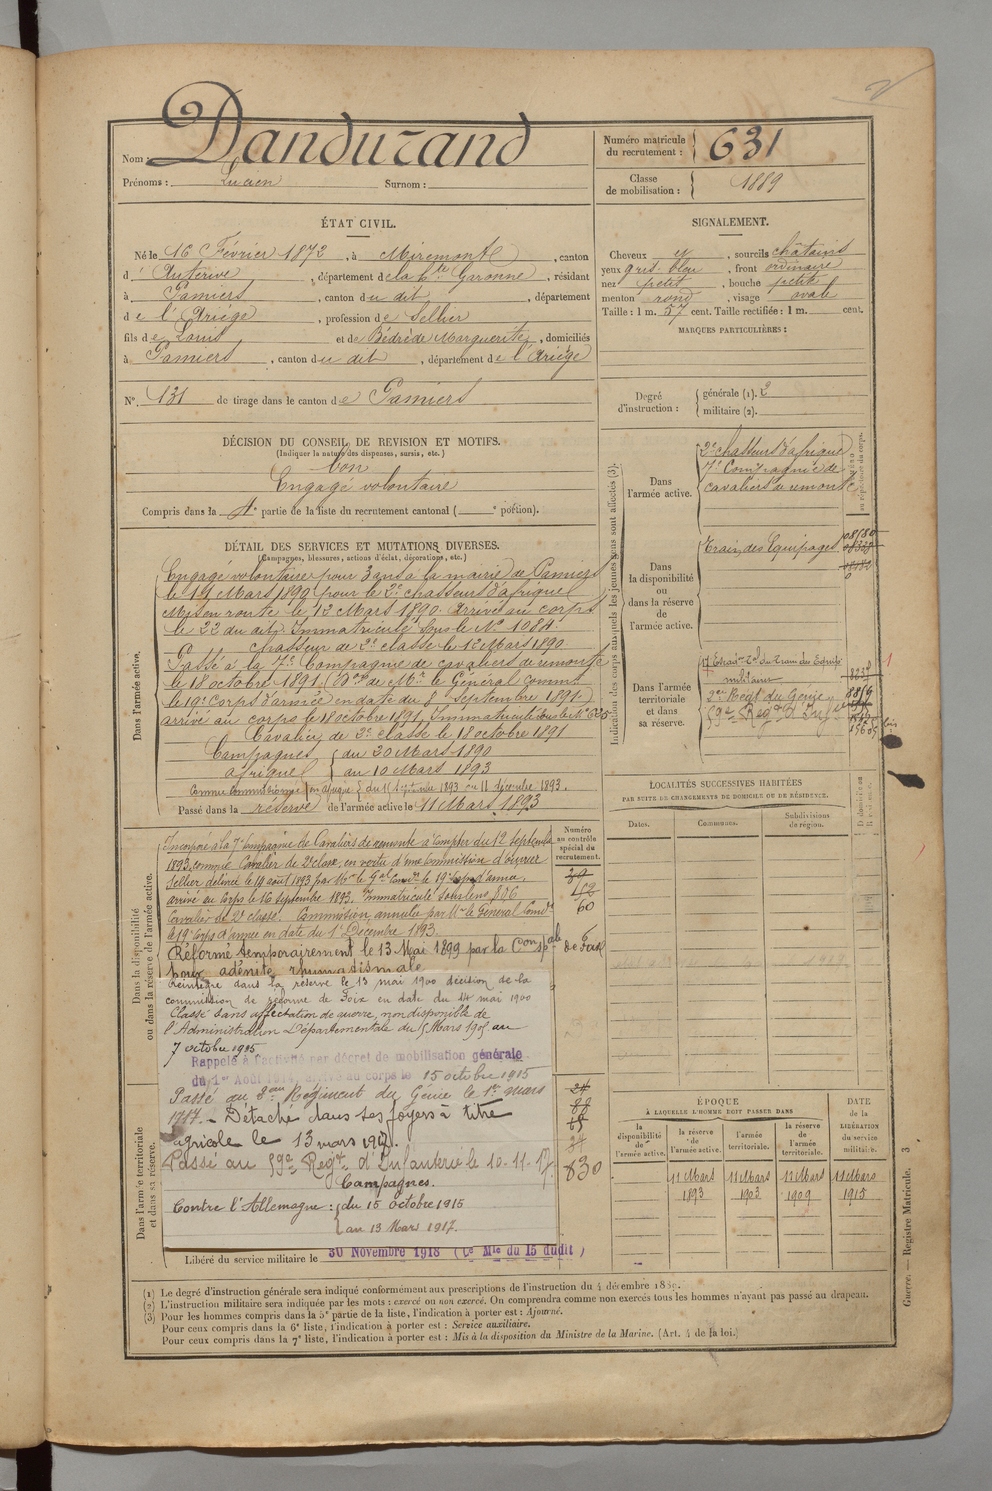 Nom : Dandurand
Prénoms : Lucien Surnom :
Numéro matricule du recrutement : 631
Classe de mobilisation : 1889
ÉTAT CIVIL.
Né le 16 Février 1872, à Miremont, canton
d'Auterive, département de la Hte Garonne, résidant
à Pamiers, canton du dit, département
de l'Ariège, profession de Sellier
fils de Louis et de Bédrède Marguerite, domiciliés
à Pamiers, canton du dit, département de l'Ariège
N° 131 de tirage dans le canton de Pamiers
SIGNALEMENT.
Cheveux et, sourcils châtains
yeux gris bleu, front ordinaire
nez petit, bouche petite
menton rond, visage ovale
Taille : 1 m. 57 cent. Taille rectifiée : 1 m. cent.
MARQUES PARTICULIÈRES :
Degré d'instruction : générale (1). 2
militaire (2).
DÉCISION DU CONSEIL DE REVISION ET MOTIFS.
(Indiquer la nature des dispenses, sursis, etc.)
bon
Engagé volontaire
Compris dans la 4e partie de la liste du recrutement cantonal ( e portion).
DÉTAIL DES SERVICES ET MUTATIONS DIVERSES.
(Campagnes, blessures, actions d'éclat, décorations, etc.)
Dans l'armée active.
Engagé volontaire pour 3 ans à la mairie de Pamiers
le 11 Mars 1890 pour le 2e chasseurs d'afrique
Mis en route le 12 Mars 1890. Arrivé au corps
le 22 du dit. Immatriculé sous le N° 1084.
chasseur de 2e classe le 12 Mars 1890
Passé à la 7e Compagnie de cavaliers de remonte
le 18 octobre 1891 (Don de Mr le Général commt
le 19e Corps d'armée en date du 8 Septembre 1891)
arrivé au corps le 18 octobre 1891, Immatriculé sous le N°
Cavalier de 2e classe le 18 octobre 1891
Campagnes du 20 Mars 1890
afrique au 10 Mars 1893
Comme Commissionné en afrique du 1 Septembre 1893 au 11 décembre 1893.
Passé dans la réserve de l'armée active le 11 Mars 1893
Dans la disponibilité ou dans la réserve de l'armée active.
Incorporé à la 7e Compagnie de Cavaliers de remonte à compter du 12 septembre
1893, comme Cavalier de 2e classe, en vertu d'une Commission d'ouvrier
Sellier délivrée le 19 août 1893 par Mr le Gal Comdt le 19e Corps d'armée.
arrivé au Corps le 16 septembre 1893. Immatriculé sous le N° 826
Cavalier de 2e classe. Commission annulée par Mr le Général Comdt
le 19e Corps d'armée en date du 1er Décembre 1893.
Réformé temporairement le 13 Mai 1899 par la Con spale de Foix
pour adénite rhumatismale
Réintégré dans la réserve le 13 mai 1900 décision de la
commission de réforme de Foix en date du 14 mai 1900
Classé sans affectation de guerre, non disponible de
l'Administration Départementale du 15 Mars 1905 au
7 octobre 1915
Rappelé à l'activité par décret de mobilisation générale
du 1er Août 1914, arrivé au corps le 15 octobre 1915
Passé au 2eme Régiment du Génie le 1er mars
1917. - Détaché dans ses foyers à titre
agricole le 13 mars 1917.
Passé au 59e Regt d'Infanterie le 10-11-17.
Campagnes.
Contre l'Allemagne : du 15 octobre 1915
au 13 Mars 1917.
Dans l'armée territoriale et dans sa réserve.
Libéré du service militaire le 30 Novembre 1918 (Ce Mle du 15 dudit)
Numéro au contrôle spécial du recrutement.
60
830
Indication des corps auxquels les jeunes gens sont affectés (3).
Dans l'armée active.
2e chasseurs d'afrique
7e Compagnie de
cavaliers de remonte
Dans la disponibilité ou dans la réserve de l'armée active.
Train des Equipages
Dans l'armée territoriale et dans sa réserve.
17 Escadon Tal du Train des Equip.
militaires
2eme Regt du Génie
59e Regt d'Infrie
LOCALITÉS SUCCESSIVES HABITÉES
PAR SUITE DE CHANGEMENTS DE DOMICILE OU DE RÉSIDENCE.
Dates. Communes. Subdivisions de région.
ÉPOQUE
À LAQUELLE L'HOMME DOIT PASSER DANS
la disponibilité de l'armée active.
la réserve de l'armée active.
l'armée territoriale.
la réserve de l'armée territoriale.
DATE de la LIBÉRATION du service militaire.
11 Mars 1893
11 Mars 1902
11 Mars 1909
11 Mars 1915
(1) Le degré d'instruction générale sera indiqué conformément aux prescriptions de l'instruction du 4 décembre 1889.
(2) L'instruction militaire sera indiquée par les mots : exercé ou non exercé. On comprendra comme non exercés tous les hommes n'ayant pas passé au drapeau.
(3) Pour les hommes compris dans la 5e partie de la liste, l'indication à porter est : Ajourné.
Pour ceux compris dans la 6e liste, l'indication à porter est : Service auxiliaire.
Pour ceux compris dans la 7e liste, l'indication à porter est : Mis à la disposition du Ministre de la Marine. (Art. 4 de la loi.)
Guerre. — Registre Matricule. 3